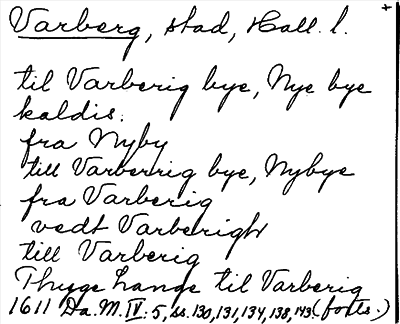 Varberg, stad, Hall. l.
til Varberig bye, Nye bye
kaldis.
fra Nyby
till Varberrig bye, Nybye
fra Varberig
vedt Varberigh
till Varberig
Thyge Lange til Varberig
1611 Da. M. IV: 5, ss. 130, 131, 134, 138, 143 (forts.)